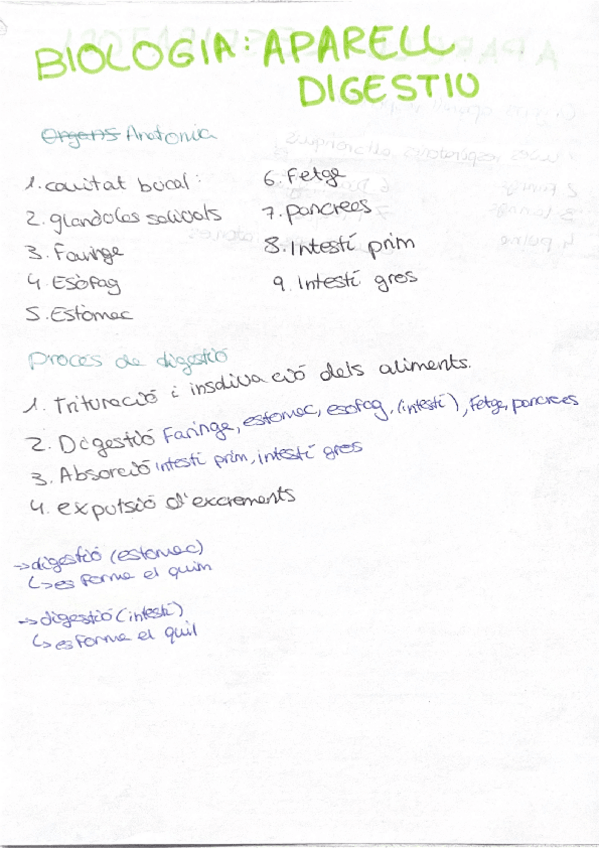 BIOLOGIA: APARELL
DIGESTIU
Organs Anatomia
1. cavitat bucal:
2. glandoles salivals
3. Faringe
4. Esòfag
5. Estòmac
6. Fetge
7. pancrees
8. Intestí prim
9. Intestí gros
Procés de digestió
1. Trituració i insalivació dels aliments.
2. Digestió Faringe, estomac, esofag, (intestí), Fetge, pancrees
3. Absorció intestí prim, intestí gros
4. expulsió d'excrements
→ digestió (estomac)
↳ es forma el quim
→ digestió (intestí)
↳ es forma el quil